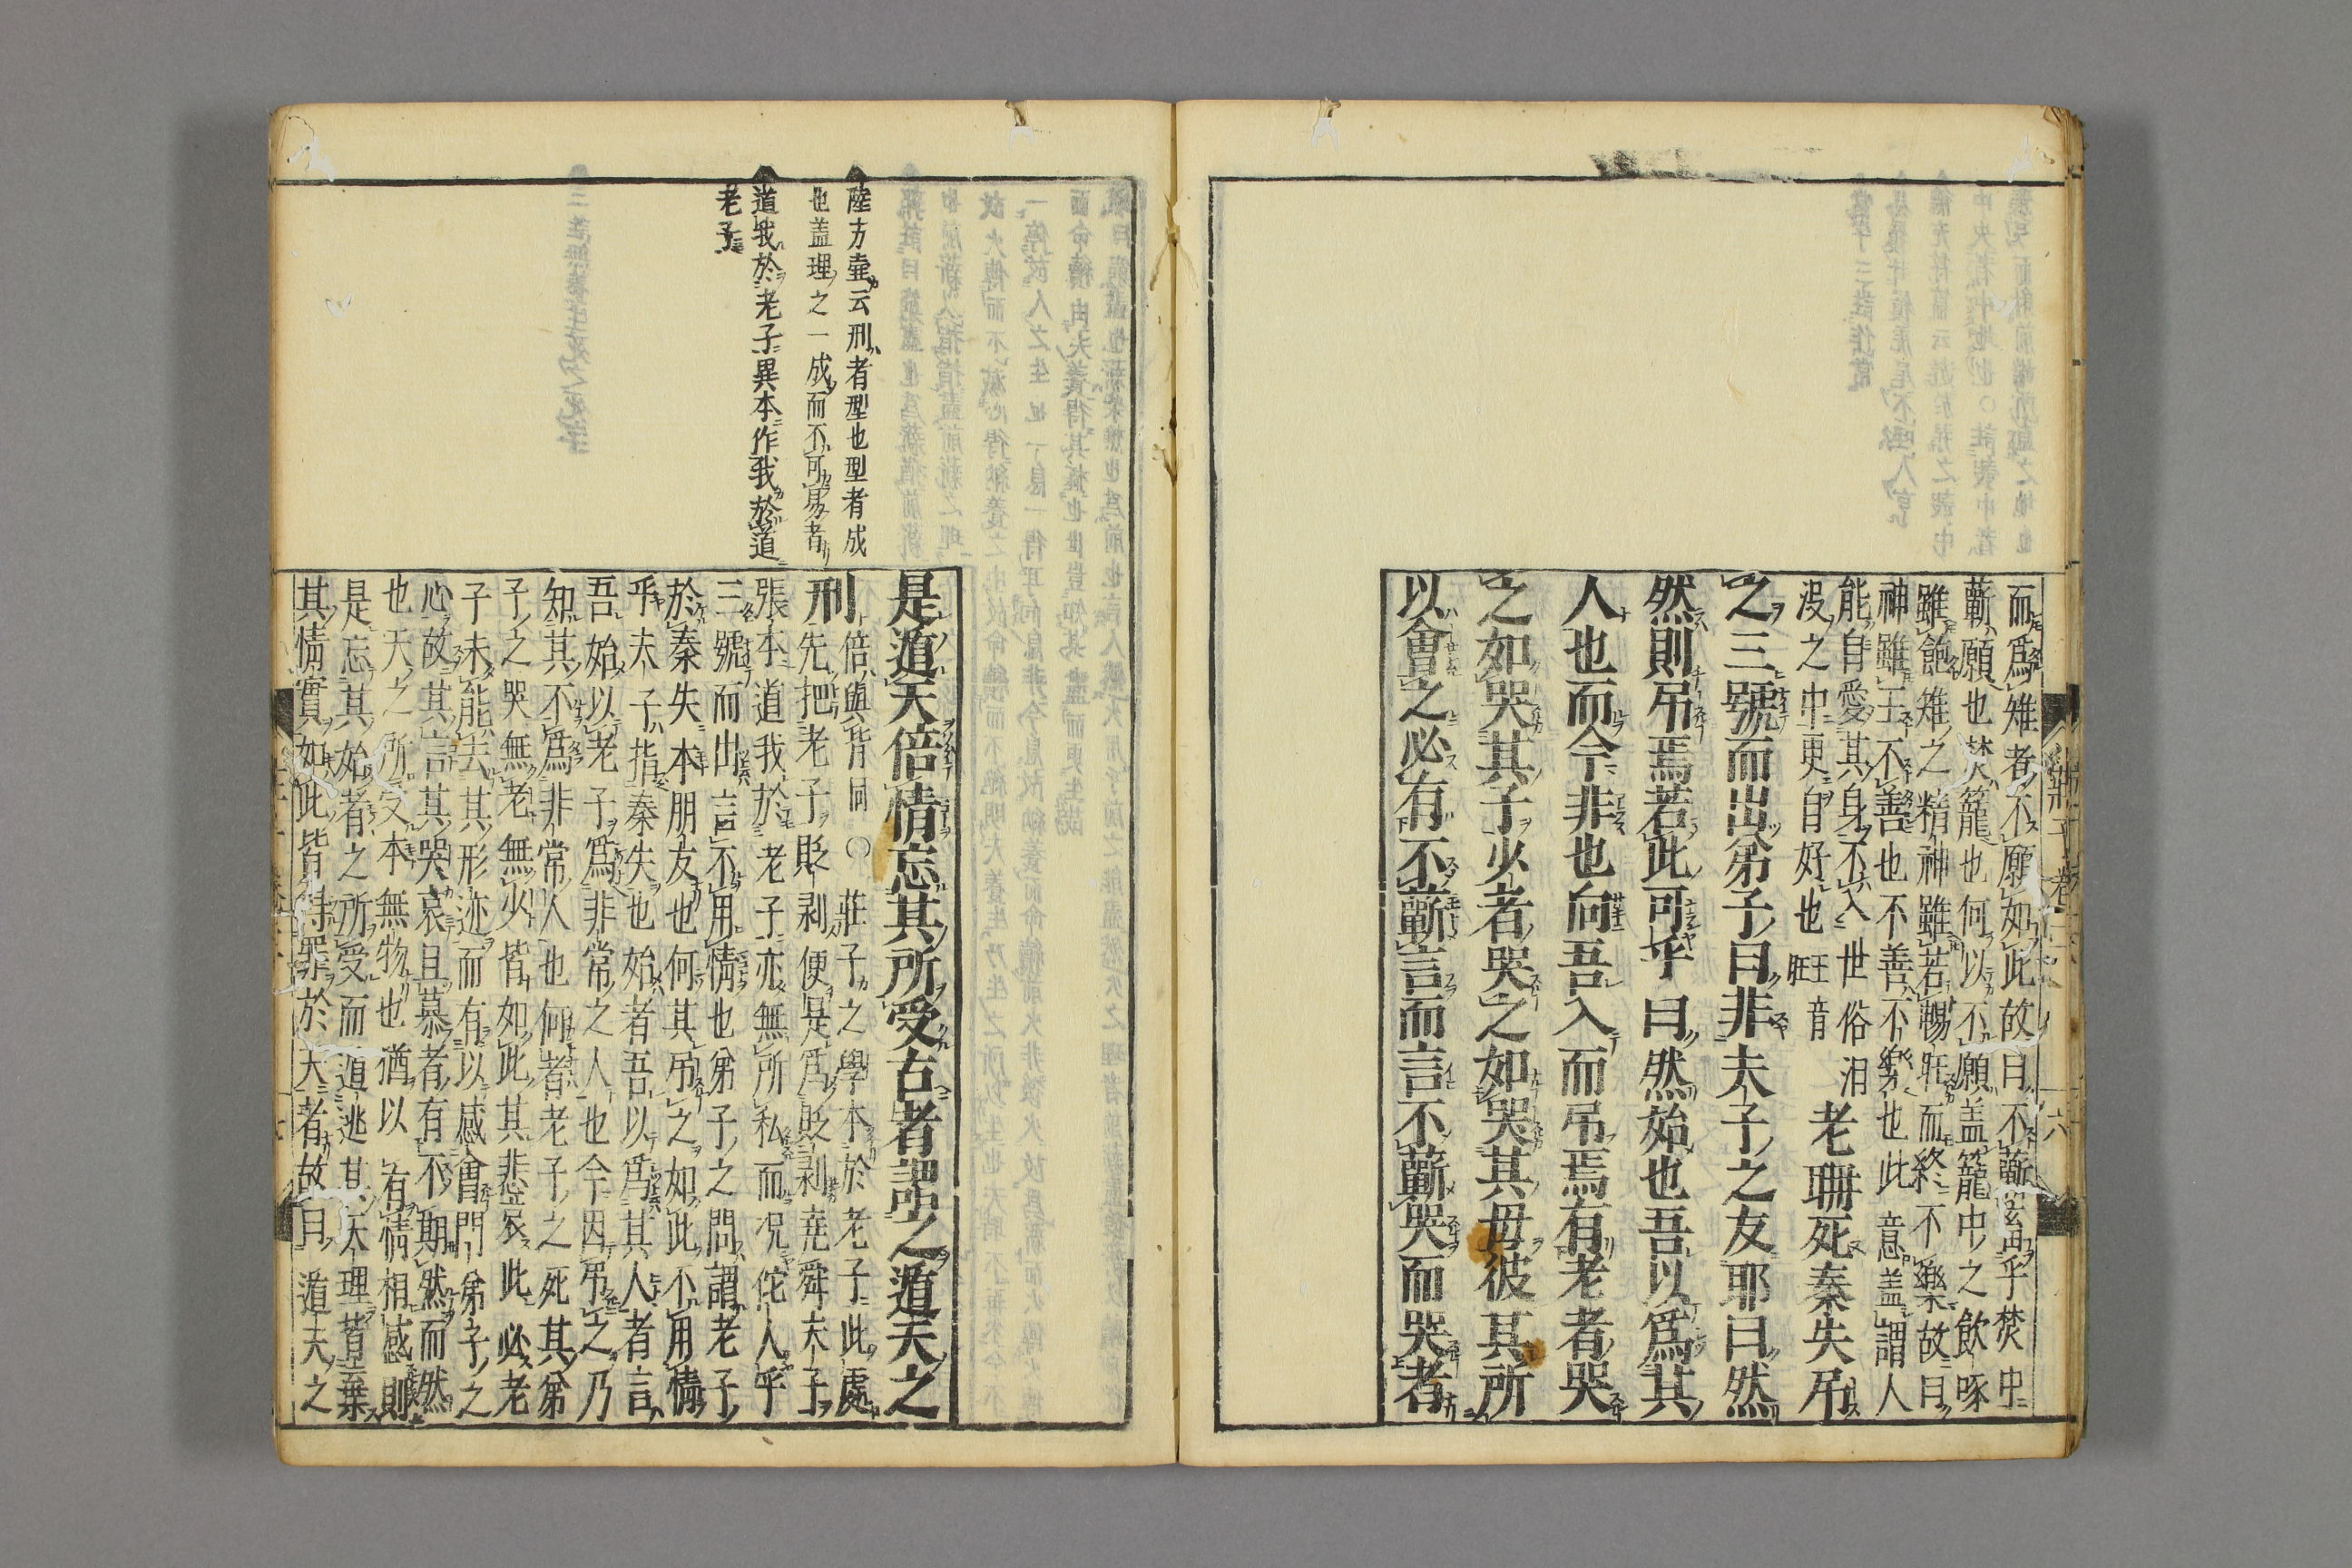 而爲雉者不願如此故曰不蘄畜乎樊中
蘄願也樊籠也何以不願盖籠中之飲啄
雖飽雉之精神雖若暢旺而終不樂故曰
神雖王不善也不善不樂也此意盖謂人
能自愛其身不入世俗汨
没之中更自好也 王音旺
老聃死秦失吊
之三號而出弟子曰非夫子之友耶曰然
然則吊焉若此可乎曰然始也吾以爲其
人也而今非也向吾入而吊焉有老者哭
之如哭其子少者哭之如哭其母彼其所
以會之必有不蘄言而言不蘄哭而哭者
陸方壷云刑者型也型者成
也盖理之一成而不可易者
道我於老子異本作我於道
老子
是遁天倍情忘其所受古者謂之遁天之
刑
倍與背同○莊子之學本於老子此處
先把老子貶剥便是爲貶剥堯舜夫子
張本道我於老子亦無所私而况佗人乎
三號而出言不用情也弟子之問謂老子
於秦失本朋友也何其吊之如此不用情
乎夫子指秦失也始者吾以爲其人者言
吾始以老子爲非常之人也今因吊之乃
知其不爲非常人也何者老子之死其弟
子之哭無老無少皆如此其悲哀此必老
子未能去其形迹而有以感會門弟子之
心故其言其哭哀且慕者有不期然而然
也天之所受本無物也猶以有情相感則
是忘其始者之所受而遁逃其天理背棄
其情實如此皆得罪於天者故曰遁天之